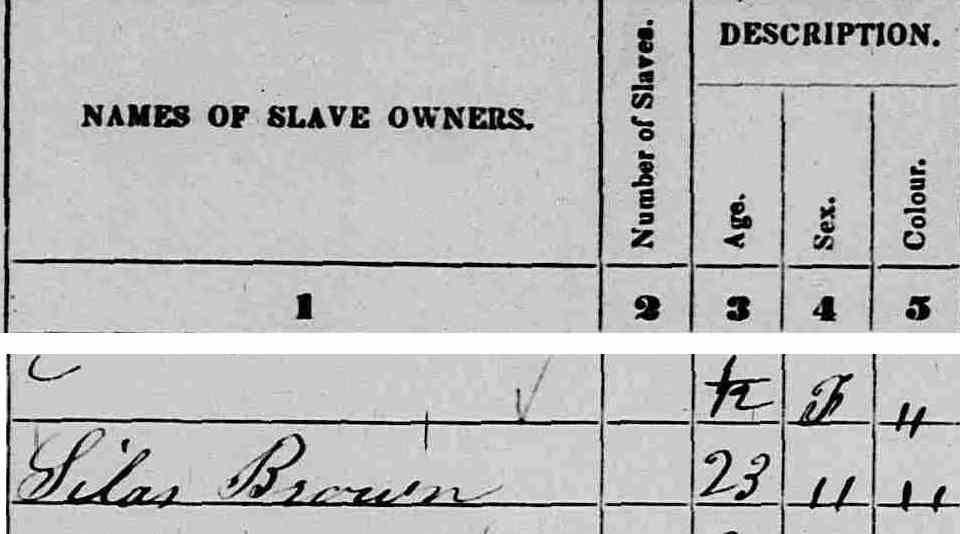 NAMES OF SLAVE OWNERS.
Number of Slaves.
DESCRIPTION.
Age.
Sex.
Colour.
1 2 3 4 5
F "
Silas Brown 23 " "